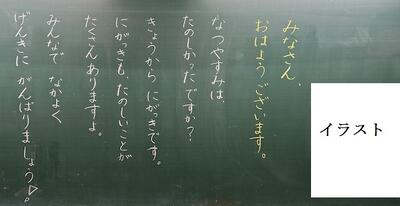 みなさん、
おはようございます。
なつやすみは、
たのしかったですか？
きょうから にがっきです。
にがっきも、たのしいことが
たくさんありますよ。
みんなで なかよく
げんきに がんばりましょう！
イラスト